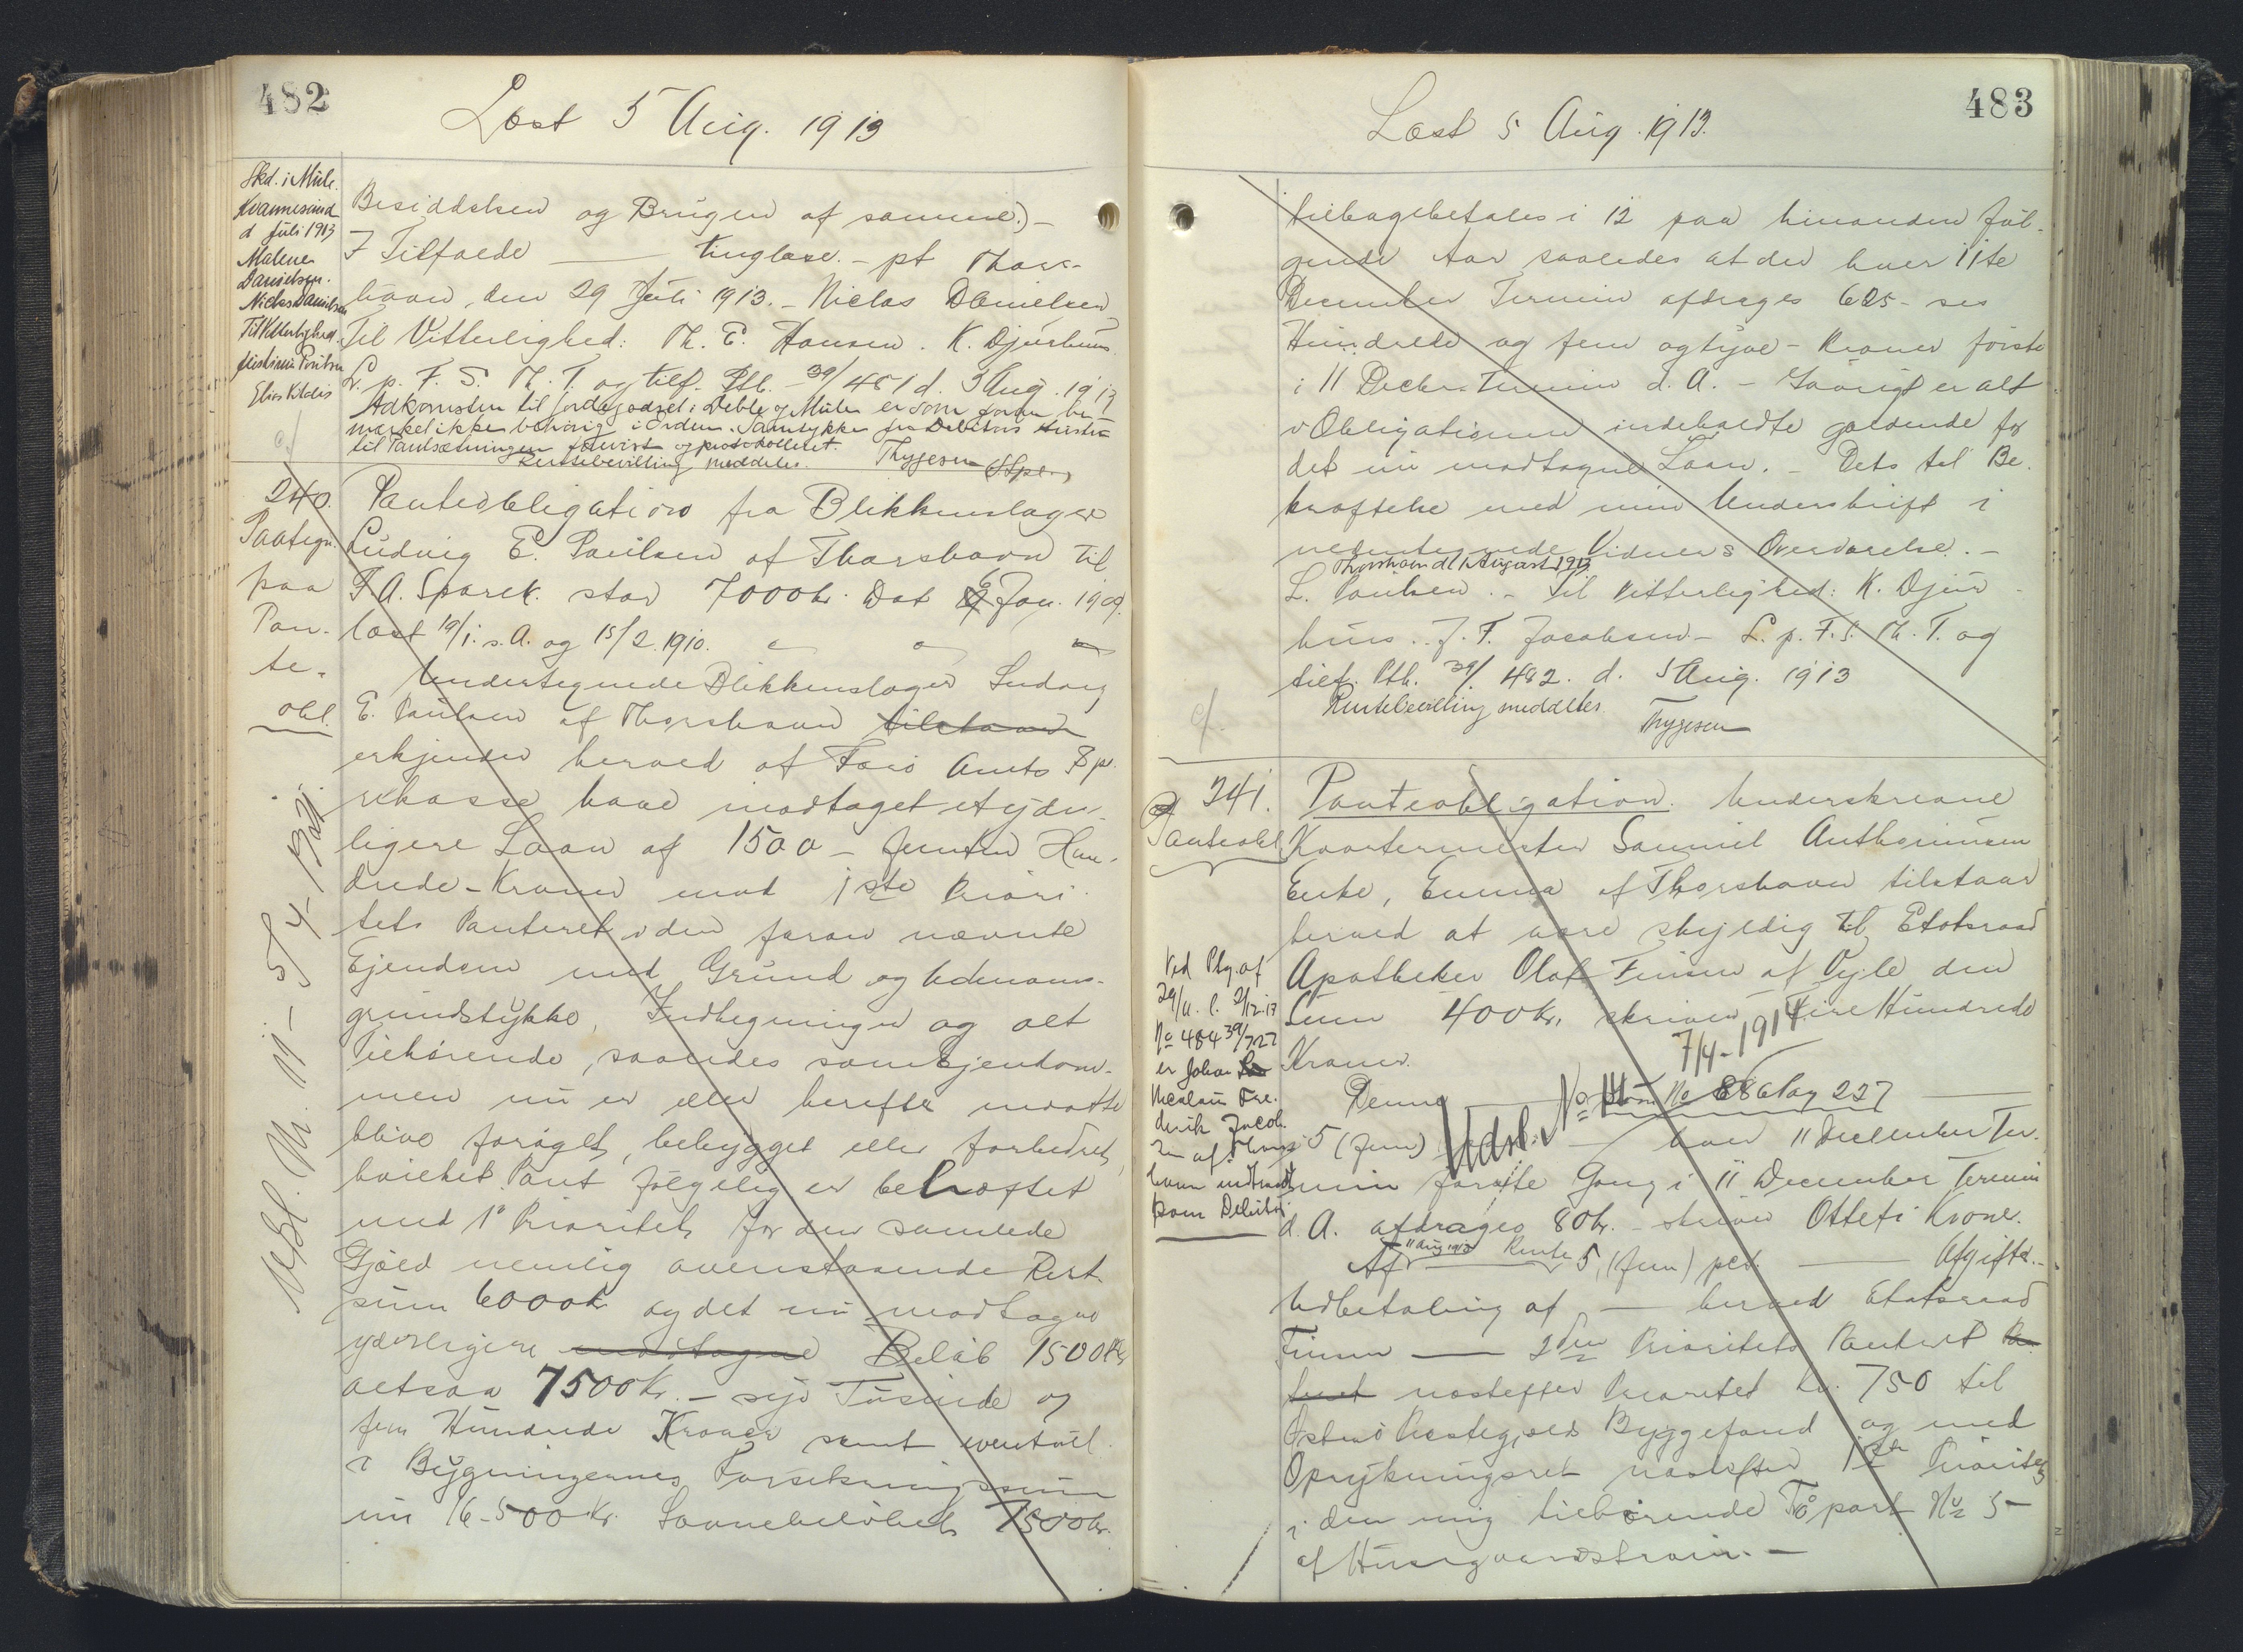 482
Læst 5 Aug. 1913
Skd. i Mule.
Kvannesund
d Juli 1913
Malene
Danielsen.
Niclas Danielsen
Til Vitterlighed.
Elias Kildis
Besiddelsen og Brugen af samme.) –
I Tilfælde — tinglæse. – pt Thors-
havn, den 29 Juli 1913. – Niclas Danielsen
Til Vitterlighed: Th. E. Hansen. K. Djurhuus.
L. p. F. S. Th. T. og tilf. Ptb. 39/481 d. 5 Aug. 1913
Adkomsten til Jordegodset i Deble og Mule er som foran be-
mærket ikke behørig i Orden. Samtykke fra Debitors Hustru
til Pantsætningen forevist og protokolleret.
Rentebevilling meddeles. Thygesen
240.
Paategn.
paa
Pan-
te-
obl.
Panteobligation fra Blikkenslager
Ludvig E. Poulsen af Thorshavn til
F. A. Sparek. stor 7000 Kr. Dat 6 Jan. 1909.
læst 19/1. s. A. og 15/2. 1910.
Undertegnede Blikkenslager Ludvig
E. Poulsen af Thorshavn tilstaar
erkjender herved af Færø Amts Spa-
rekasse have modtaget et yder-
ligere Laan af 1500 – femten Hun-
drede – Kroner mod 1ste Priori-
tets Panteret i den foran nævnte
Ejendom med Grund og Udenoms-
grundstykke, Indhegninger og alt
Tilhørende, saaledes som Ejendom-
men nu er eller herefter maatte
blive forøget, bebygget eller forbedret,
hvilket Pant følgelig er behæftet
med 1' Prioritet for den samlede
Gjæld nemlig ovenstaaende Rest-
sum 6000 Kr og det nu modtagne
yderligere modtagne Beløb 1500 Kr
altsaa 7500 Kr. – syv Tusinde og
fem Hundrede Kroner samt eventuel.
i Bygningernes Forsikringssum
nu 16-500 Kr. Laanebeløbet 7500 Kr.
483
Læst 5 Aug. 1913.
tilbagebetales i 12 paa hinanden føl-
gende Aar saaledes at der hver 11te
December Termin afdrages 625 – ses
Hundrede og fem og tyve – Kroner første
i 11 Decbr. Termin d. A. – Iøvrigt er alt
i Obligationen indeholdte gældende for
det nu modtagne Laan. – Dets til Be-
kræftelse med min Underskrift i
undertegnede Vidners Overværelse. –
Thorshavn d. 1 August 1913
L. Poulsen. – Til Vitterlighed: K. Djur-
huus. J. F. Jacobsen – L. p. F. S. Th. T. og
tilf. Ptb. 39/482. d. 5 Aug. 1913
Rentebevilling meddeles.
Thygesen
241.
Panteobl.
Panteobligation. Underskrevne
Kvartermester Samuel Anthoniussen
Enke, Emma af Thorshavn tilstaar
herved at være skyldig til Etatsraad
Apotheker Olaf Finsen af Vejle den
Sum 400 Kr, skriver Fire Hundrede
Kroner.
Ved Ptg. af
29/11. l. 2/12-13
No 484 39/727
er Johan
Nicolai Fre-
derik Jacob-
sen af Thors-
havn indtraadt
som Debitor.
7/4-1914
Denne
Udsl.
No 88 Pag 227
5 (fem) hver 11 December Ter-
min første Gang i 11 December Termin
d. A. afdrages 80 Kr. – skriver Otteti Kroner.
Af 11 Aug 1913 Rente 5 (fem) pct. — Afgifter. –
Udbetaling af — herved Etatsraad
Finsen — 2den Prioritets Panteret
næstefter Prioritet Kr. 750 til
Østerø Præstegjælds Byggefond og med
Oprykningsret næstefter 1ste Prioritet
i den mig tilhørende Topart No 5
af Husegaardstrøin. –